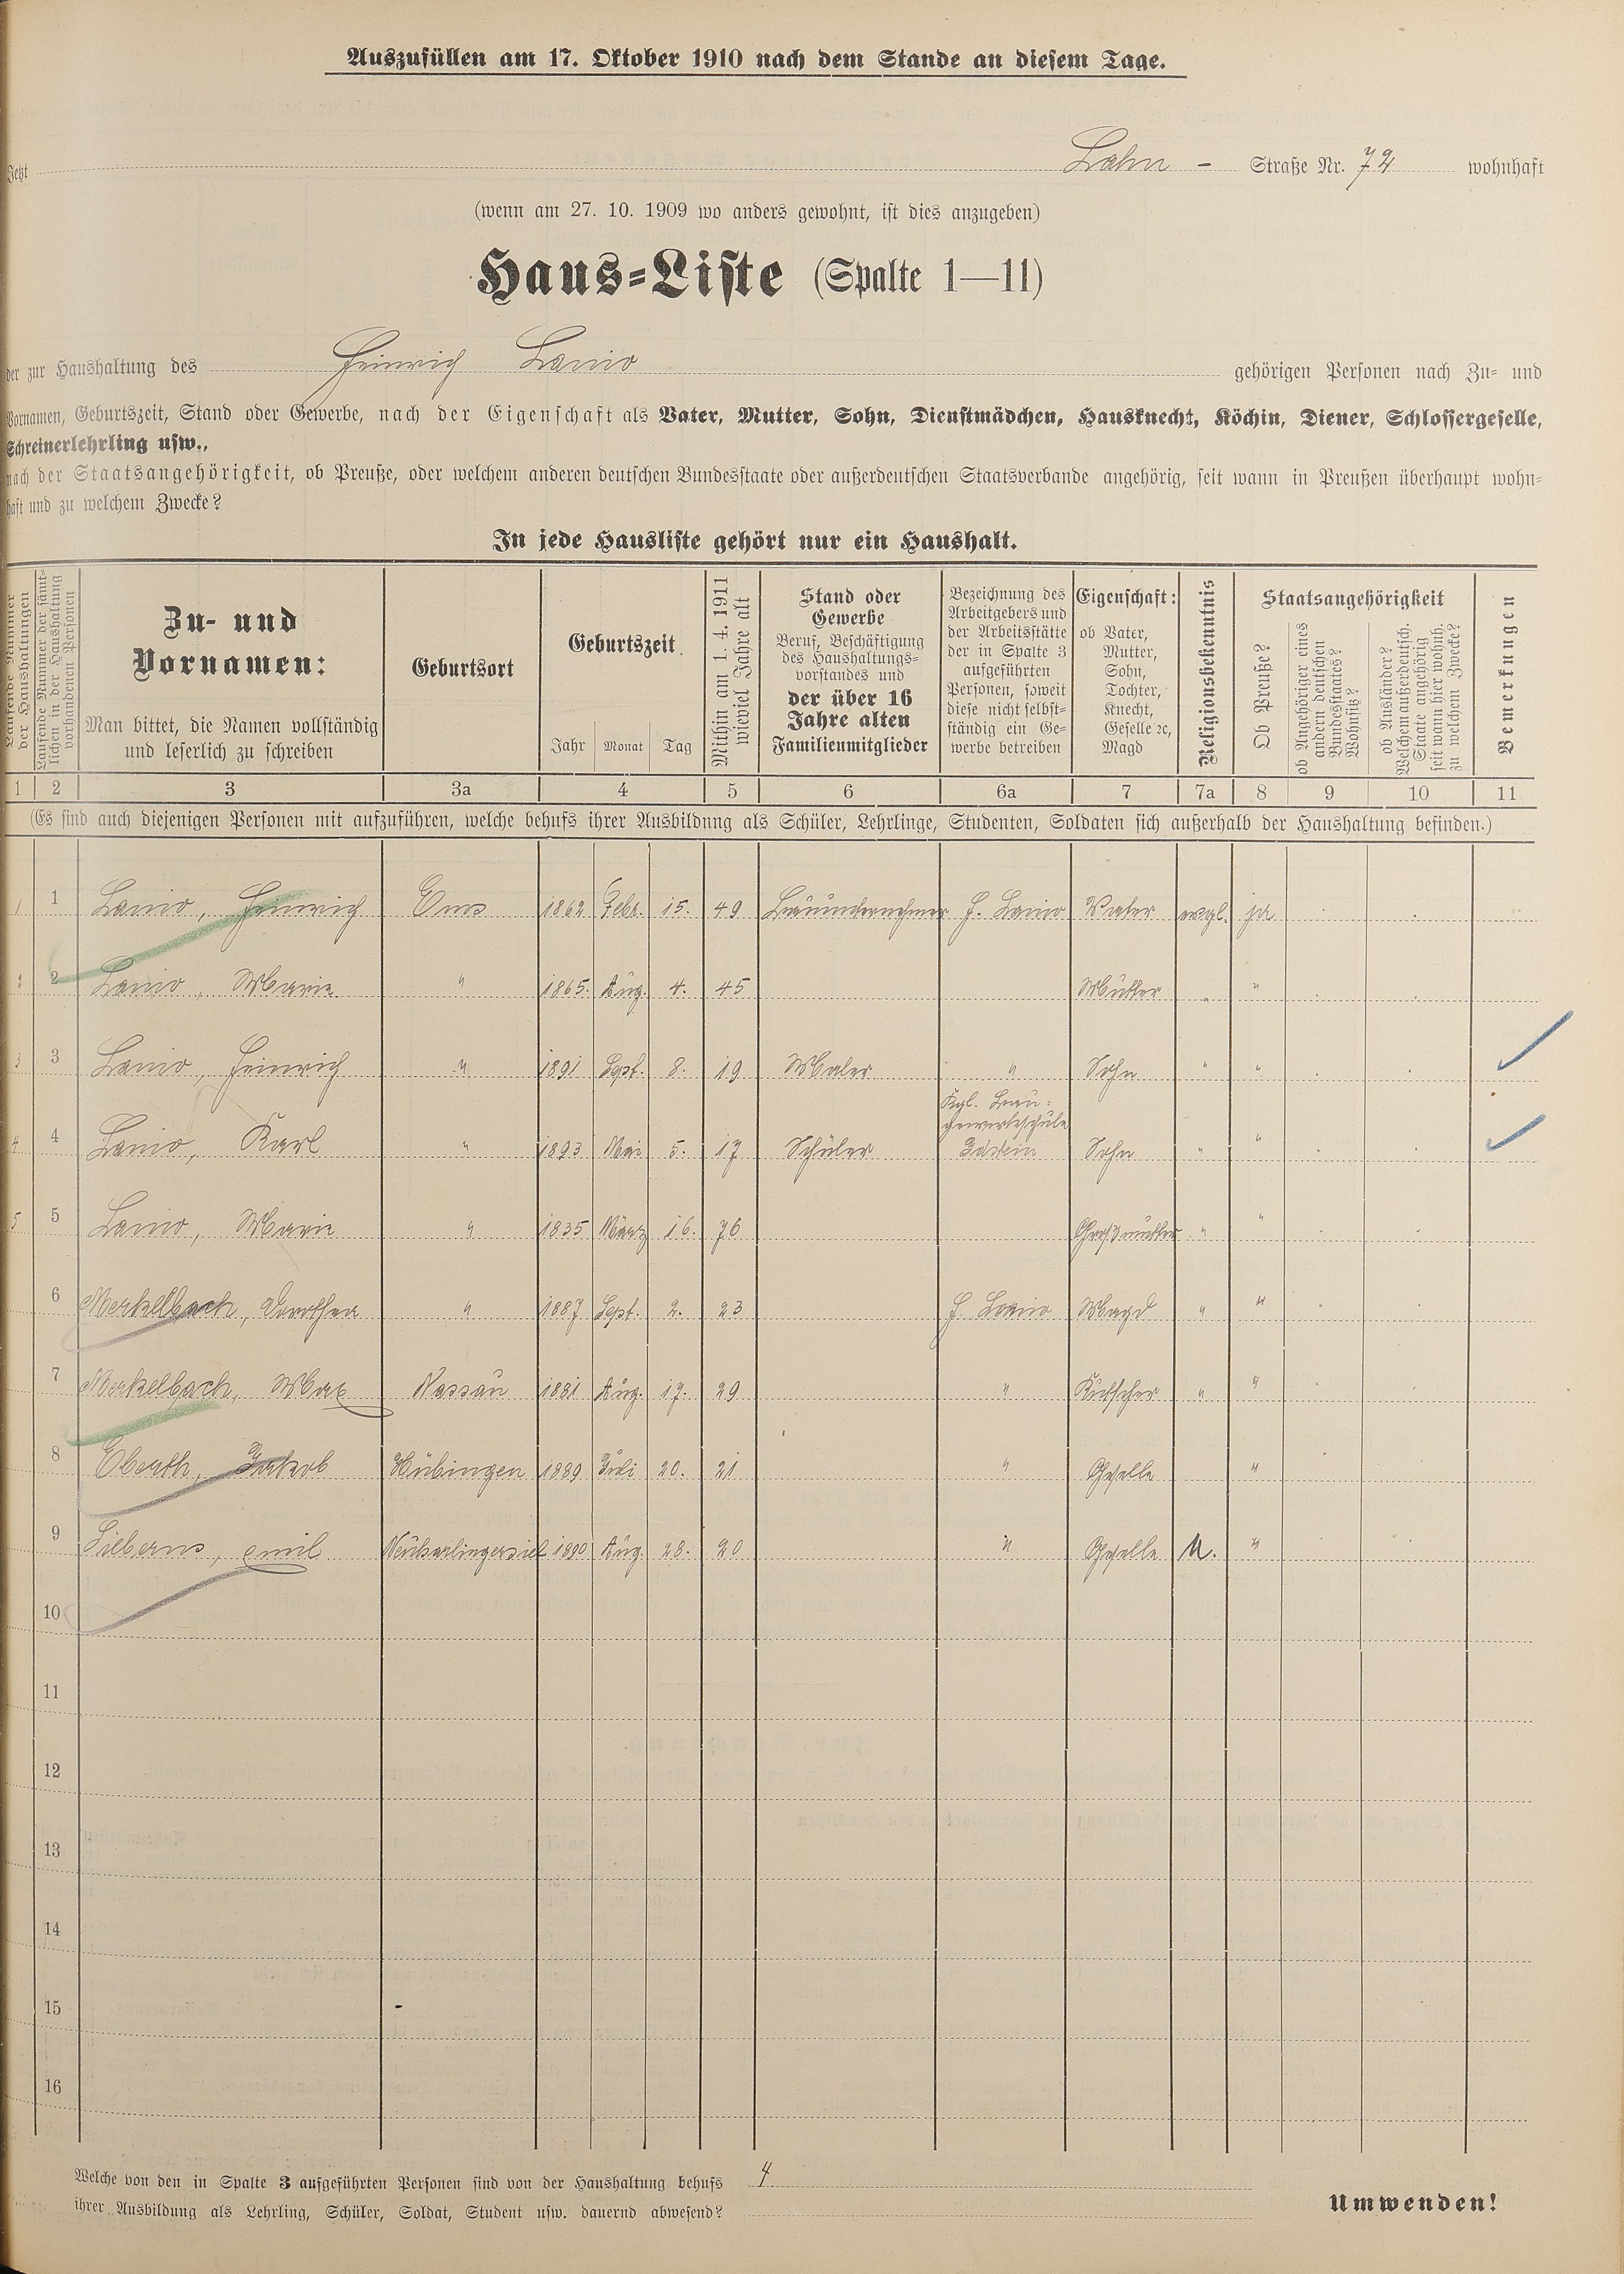 Auszufüllen am 17. Oktober 1910 nach dem Stande an diesem Tage.
Jetzt Lahn - Straße Nr. 72 wohnhaft
(wenn am 27. 10. 1909 wo anders gewohnt, ist dies anzugeben)
Haus-Liste (Spalte 1—11)
der zur Haushaltung des Heinrich Lanio gehörigen Personen nach Zu- und
Vornamen, Geburtszeit, Stand oder Gewerbe, nach der Eigenschaft als Vater, Mutter, Sohn, Dienstmädchen, Hausknecht, Köchin, Diener, Schlossergeselle,
Schreinerlehrling usw.,
nach der Staatsangehörigkeit, ob Preuße, oder welchem anderen deutschen Bundesstaate oder außerdeutschen Staatsverbande angehörig, seit wann in Preußen überhaupt wohn-
haft und zu welchem Zwecke?
In jede Hausliste gehört nur ein Haushalt.
Laufende Nummer
der Haushaltungen
Laufende Nummer der sämt-
lichen in der Haushaltung
vorhandenen Personen
Zu- und
Vornamen:
Man bittet, die Namen vollständig
und leserlich zu schreiben
Geburtsort
Geburtszeit
Jahr Monat Tag
Mithin am 1. 4. 1911
wieviel Jahre alt
Stand oder
Gewerbe
Beruf, Beschäftigung
des Haushaltungs-
vorstandes und
der über 16
Jahre alten
Familienmitglieder
Bezeichnung des
Arbeitgebers und
der Arbeitsstätte
der in Spalte 3
aufgeführten
Personen, soweit
diese nicht selbst-
ständig ein Ge-
werbe betreiben
Eigenschaft:
ob Vater,
Mutter,
Sohn,
Tochter,
Knecht,
Geselle ꝛc,
Magd
Religionsbekenntnis
Staatsangehörigkeit
Ob Preuße?
ob Angehöriger eines
andern deutschen
Bundesstaates?
Wohnsitz?
ob Ausländer?
Welchem außerdeutsch.
Staate angehörig
seit wann hier wohnh.
zu welchem Zwecke?
Bemerkungen
1 2 3 3a 4 5 6 6a 7 7a 8 9 10 11
(Es sind auch diejenigen Personen mit aufzuführen, welche behufs ihrer Ausbildung als Schüler, Lehrlinge, Studenten, Soldaten sich außerhalb der Haushaltung befinden.)
1 1 Lanio, Heinrich Ems 1862 Febr. 15. 49 Bauunternehmer H. Lanio Vater evgl. ja
2 2 Lanio, Marie " 1865. Aug. 4. 45 Mutter " "
3 3 Lanio, Heinrich " 1891 Sept. 8. 19 Maler " Sohn " "
Kgl. Bau-
gewerkschule
4 4 Lanio, Karl " 1893 Mai 5. 17 Schüler Idstein Sohn " "
5 5 Lanio, Marie " 1835 März 16. 76 Großmutter " "
6 Merkelbach, Dorothea " 1887 Sept. 2. 23 H. Lanio Magd " "
7 Merkelbach, Max Nassau 1881 Aug. 17. 29 " Kutscher " "
8 Eberth, Jakob Hübingen 1889 Juli 20. 21 " Geselle "
9 Sieberns, Emil Neuharlingersiel 1890 Aug. 28. 20 " Geselle "
10
11
12
13
14
15
16
Welche von den in Spalte 3 aufgeführten Personen sind von der Haushaltung behufs 4
ihrer Ausbildung als Lehrling, Schüler, Soldat, Student usw. dauernd abwesend?
Umwenden!